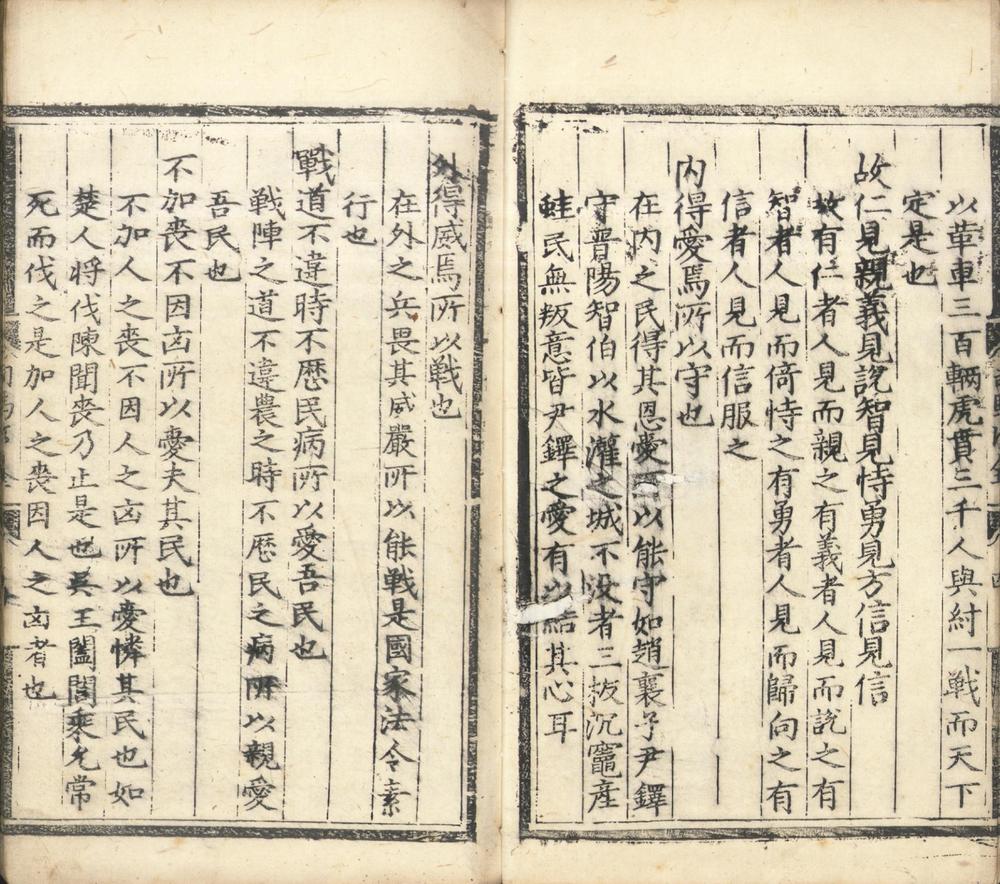 以革車三百輛虎賁三千人與紂一戰而天下
定是也
故仁見親義見說智見恃勇見方信見信
故有仁者人見而親之有義者人見而說之有
智者人見而倚恃之有勇者人見而歸向之有
信者人見而信服之
内得愛焉所以守也
在内之民得其恩愛所以能守如趙襄子尹鐸
守晋陽智伯以水灌之城不没者三板沉竈産
蛙民無叛意皆尹鐸之愛有以結其心耳
外得威焉所以戰也
在外之兵畏其威嚴所以能戰是國家法令素
行也
戰道不違時不歷民病所以愛吾民也
戰陣之道不違農之時不歷民之病所以親愛
吾民也
不加喪不因凶所以愛夫其民也
不加人之喪不因人之凶所以愛憐其民也如
楚人將伐陳聞喪乃止是也吳王闔閭乘允常
死而伐之是加人之喪因人之凶者也